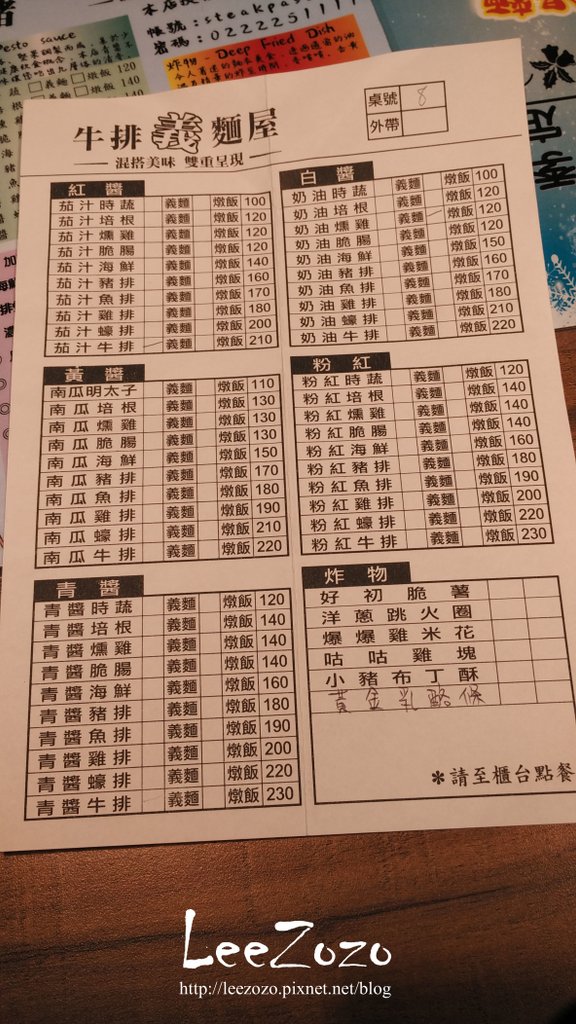 esto sauce
120
140
本店提
帳號:steakpas
密碼:0222251111
炸物 - Deep Fried Dish
牛排義麵屋
混搭美味 雙重呈現
桌號 8
外帶
紅醬
茄汁時蔬 義麵 燉飯 100
茄汁培根 義麵 燉飯 120
茄汁燻雞 義麵 燉飯 120
茄汁脆腸 義麵 燉飯 120
茄汁海鮮 義麵 燉飯 140
茄汁豬排 義麵 燉飯 160
茄汁魚排 義麵 燉飯 170
茄汁雞排 義麵 燉飯 180
茄汁蠔排 義麵 燉飯 200
茄汁牛排 義麵 燉飯 210
白醬
奶油時蔬 義麵 燉飯 100
奶油培根 義麵 燉飯 120
奶油燻雞 義麵 燉飯 120
奶油脆腸 義麵 燉飯 120
奶油海鮮 義麵 燉飯 150
奶油豬排 義麵 燉飯 160
奶油魚排 義麵 燉飯 170
奶油雞排 義麵 燉飯 180
奶油蠔排 義麵 燉飯 210
奶油牛排 義麵 燉飯 220
黃醬
南瓜明太子 義麵 燉飯 110
南瓜培根 義麵 燉飯 130
南瓜燻雞 義麵 燉飯 130
南瓜脆腸 義麵 燉飯 130
南瓜海鮮 義麵 燉飯 150
南瓜豬排 義麵 燉飯 170
南瓜魚排 義麵 燉飯 180
南瓜雞排 義麵 燉飯 190
南瓜蠔排 義麵 燉飯 210
南瓜牛排 義麵 燉飯 220
粉紅
粉紅時蔬 義麵 燉飯 120
粉紅培根 義麵 燉飯 140
粉紅燻雞 義麵 燉飯 140
粉紅脆腸 義麵 燉飯 140
粉紅海鮮 義麵 燉飯 160
粉紅豬排 義麵 燉飯 180
粉紅魚排 義麵 燉飯 190
粉紅雞排 義麵 燉飯 200
粉紅蠔排 義麵 燉飯 220
粉紅牛排 義麵 燉飯 230
青醬
青醬時蔬 義麵 燉飯 120
青醬培根 義麵 燉飯 140
青醬燻雞 義麵 燉飯 140
青醬脆腸 義麵 燉飯 140
青醬海鮮 義麵 燉飯 160
青醬豬排 義麵 燉飯 180
青醬魚排 義麵 燉飯 190
青醬雞排 義麵 燉飯 200
青醬蠔排 義麵 燉飯 220
青醬牛排 義麵 燉飯 230
炸物
好初脆薯
洋蔥跳火圈
爆爆雞米花
咕咕雞塊
小豬布丁酥
黃金乳酪條
*請至櫃台點餐
LeeZozo
http://leezozo.pixnet.net/blog